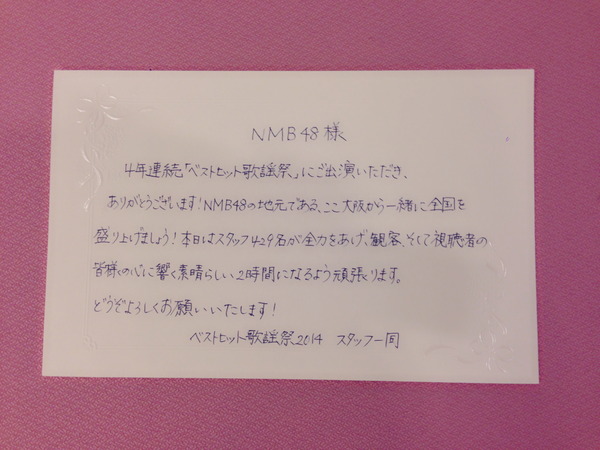 NMB48様
4年連続「ベストヒット歌謡祭」にご出演いただき、
ありがとうございます!NMB48の地元である、ここ大阪から一緒に全国を
盛り上げましょう!本日はスタッフ429名が全力をあげ、観客、そして視聴者の
皆様の心に響く素晴らしい2時間になるよう頑張ります。
どうぞよろしくお願いいたします!
ベストヒット歌謡祭2014 スタッフ一同